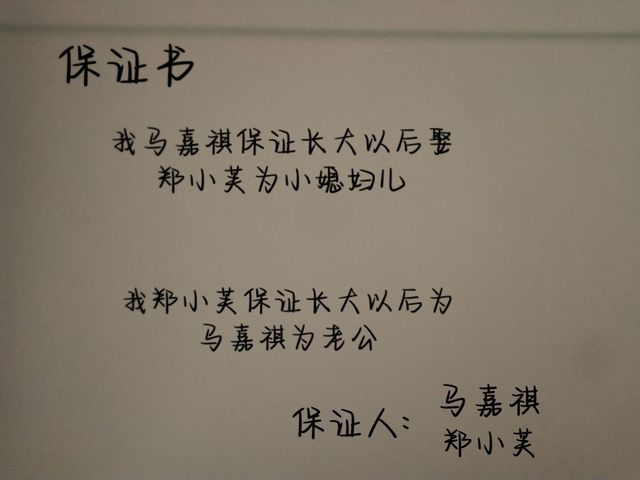 保证书
我马嘉祺保证长大以后娶
郑小芙为小媳妇儿
我郑小芙保证长大以后为
马嘉祺为老公
保证人：马嘉祺
郑小芙